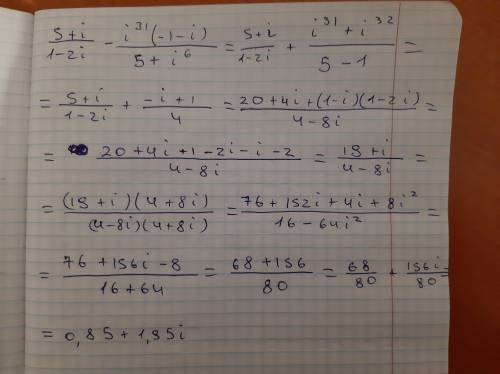 (5+i)/(1-2i) - (i^31(-1-i))/(5+i^6) = (5+i)/(1-2i) + (i^31+i^32)/(5-1) =
= (5+i)/(1-2i) + (-i+1)/4 = (20+4i+(1-i)(1-2i))/(4-8i) =
= (20+4i+1-2i-i-2)/(4-8i) = (19+i)/(4-8i) =
= ((19+i)(4+8i))/((4-8i)(4+8i)) = (76+152i+4i+8i^2)/(16-64i^2) =
= (76+156i-8)/(16+64) = (68+156)/80 = 68/80 + 156i/80 =
= 0,85+1,95i